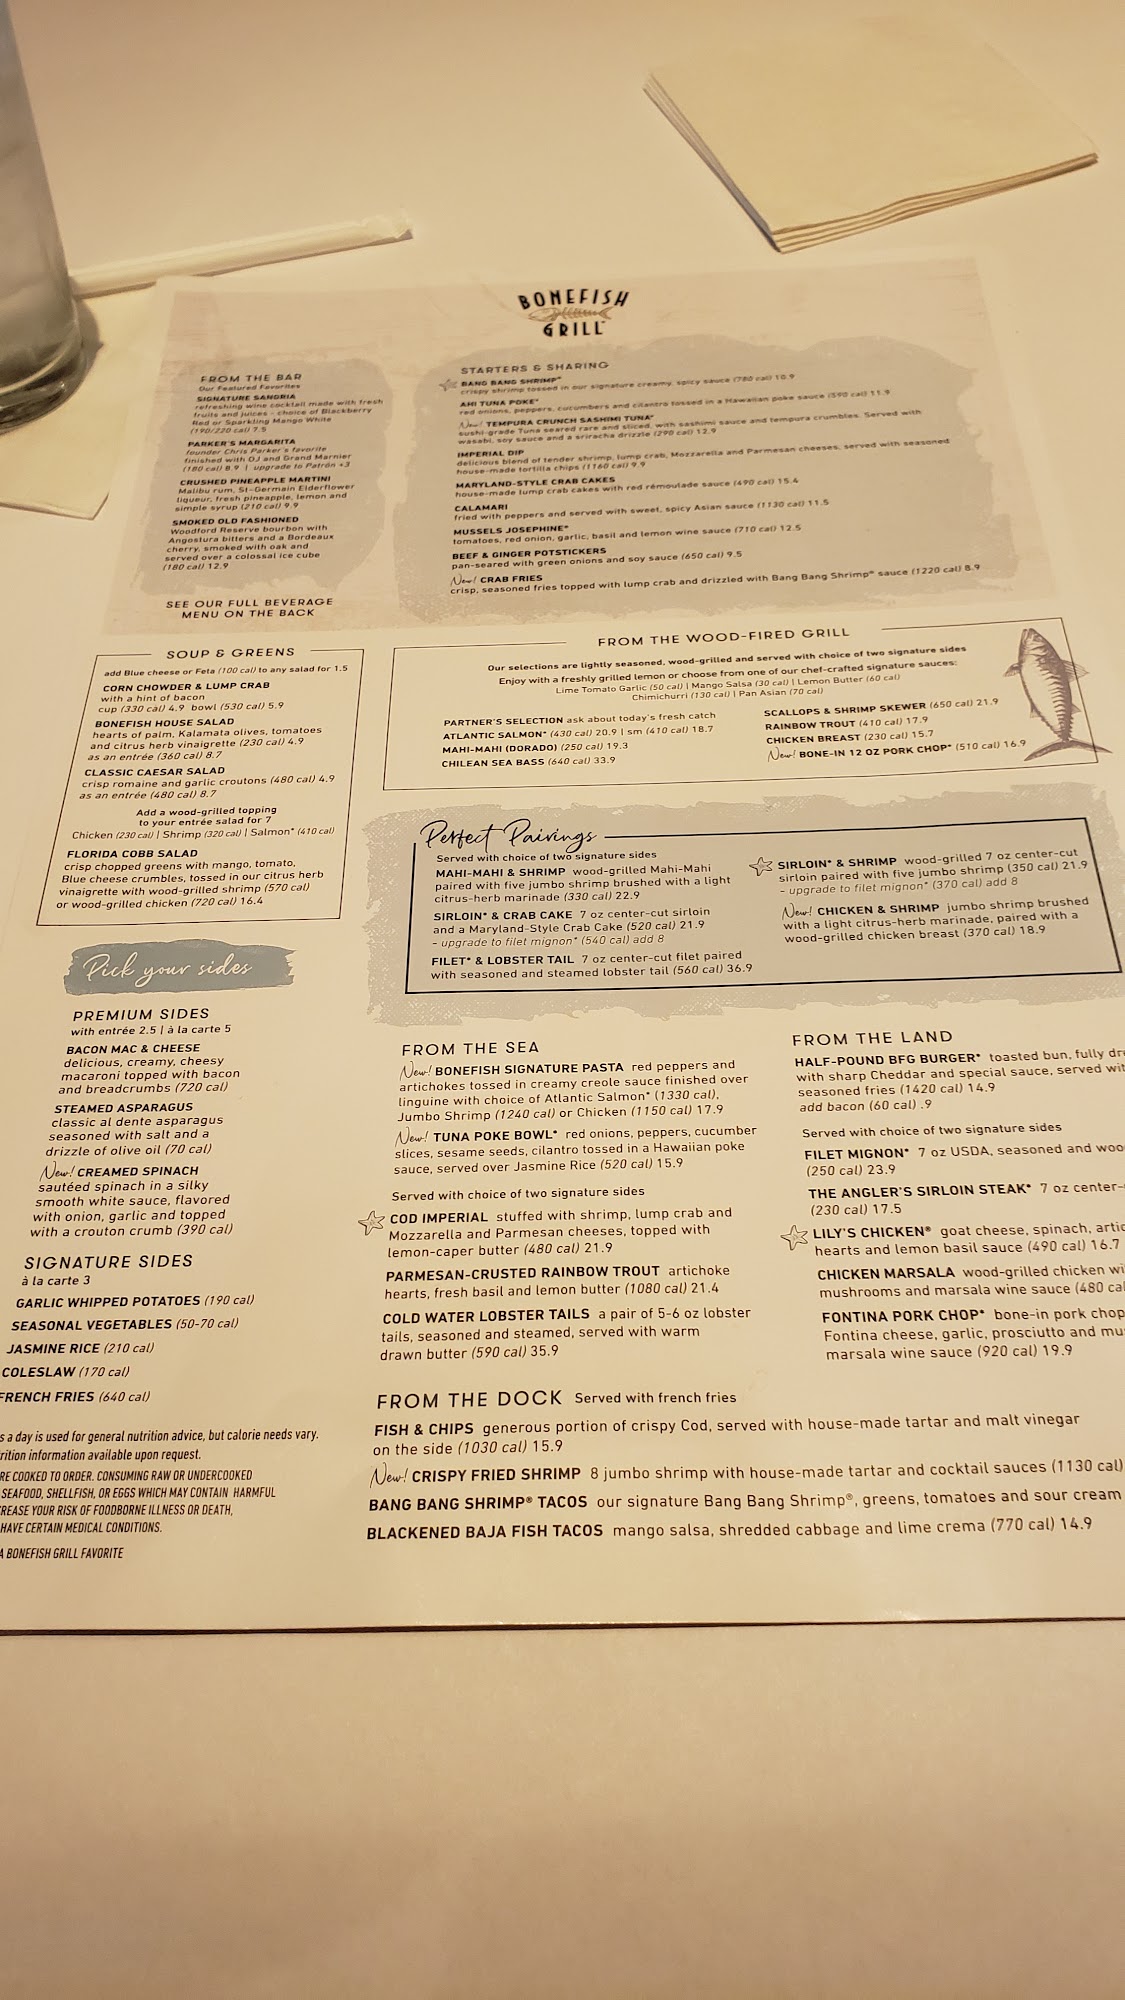 BONEFISH
GRILL
FROM THE BAR
Our Featured Favorites
SIGNATURE SANGRIA
refreshing wine cocktail made with fresh
fruits and juices - choice of Blackberry
Red or Sparkling Mango White
(190/220 cal) 7.5
PARKER'S MARGARITA
founder Chris Parker's favorite
finished with OJ and Grand Marnier
(180 cal) 8.9 | upgrade to Patrón +3
CRUSHED PINEAPPLE MARTINI
Malibu rum, St-Germain Elderflower
liqueur, fresh pineapple, lemon and
simple syrup (210 cal) 9.9
SMOKED OLD FASHIONED
Woodford Reserve bourbon with
Angostura bitters and a Bordeaux
cherry, smoked with oak and
served over a colossal ice cube
(180 cal) 12.9
SEE OUR FULL BEVERAGE
MENU ON THE BACK
STARTERS & SHARING
BANG BANG SHRIMP®
crispy shrimp tossed in our signature creamy, spicy sauce (780 cal) 10.9
AHI TUNA POKE*
red onions, peppers, cucumbers and cilantro tossed in a Hawaiian poke sauce (590 cal) 11.9
New! TEMPURA CRUNCH SASHIMI TUNA*
sushi-grade Tuna seared rare and sliced, with sashimi sauce and tempura crumbles. Served with
wasabi, soy sauce and a sriracha drizzle (290 cal) 12.9
IMPERIAL DIP
delicious blend of tender shrimp, lump crab, Mozzarella and Parmesan cheeses, served with seasoned
house-made tortilla chips (1160 cal) 9.9
MARYLAND-STYLE CRAB CAKES
house-made lump crab cakes with red rémoulade sauce (490 cal) 15.4
CALAMARI
fried with peppers and served with sweet, spicy Asian sauce (1130 cal) 11.5
MUSSELS JOSEPHINE*
tomatoes, red onion, garlic, basil and lemon wine sauce (710 cal) 12.5
BEEF & GINGER POTSTICKERS
pan-seared with green onions and soy sauce (650 cal) 9.5
New! CRAB FRIES
crisp, seasoned fries topped with lump crab and drizzled with Bang Bang Shrimp® sauce (1220 cal) 8.9
SOUP & GREENS
add Blue cheese or Feta (100 cal) to any salad for 1.5
CORN CHOWDER & LUMP CRAB
with a hint of bacon
cup (330 cal) 4.9 bowl (530 cal) 5.9
BONEFISH HOUSE SALAD
hearts of palm, Kalamata olives, tomatoes
and citrus herb vinaigrette (230 cal) 4.9
as an entrée (360 cal) 8.7
CLASSIC CAESAR SALAD
crisp romaine and garlic croutons (480 cal) 4.9
as an entrée (480 cal) 8.7
Add a wood-grilled topping
to your entrée salad for 7
Chicken (230 cal) | Shrimp (320 cal) | Salmon* (410 cal)
FLORIDA COBB SALAD
crisp chopped greens with mango, tomato,
Blue cheese crumbles, tossed in our citrus herb
vinaigrette with wood-grilled shrimp (570 cal)
or wood-grilled chicken (720 cal) 16.4
FROM THE WOOD-FIRED GRILL
Our selections are lightly seasoned, wood-grilled and served with choice of two signature sides
Enjoy with a freshly grilled lemon or choose from one of our chef-crafted signature sauces:
Lime Tomato Garlic (50 cal) | Mango Salsa (30 cal) | Lemon Butter (60 cal)
Chimichurri (130 cal) | Pan Asian (70 cal)
PARTNER'S SELECTION ask about today's fresh catch
ATLANTIC SALMON* (430 cal) 20.9 | sm (410 cal) 18.7
MAHI-MAHI (DORADO) (250 cal) 19.3
CHILEAN SEA BASS (640 cal) 33.9
SCALLOPS & SHRIMP SKEWER (650 cal) 21.9
RAINBOW TROUT (410 cal) 17.9
CHICKEN BREAST (230 cal) 15.7
New! BONE-IN 12 OZ PORK CHOP* (510 cal) 16.9
Perfect Pairings
Served with choice of two signature sides
MAHI-MAHI & SHRIMP wood-grilled Mahi-Mahi
paired with five jumbo shrimp brushed with a light
citrus-herb marinade (330 cal) 22.9
SIRLOIN* & CRAB CAKE 7 oz center-cut sirloin
and a Maryland-Style Crab Cake (520 cal) 21.9
- upgrade to filet mignon* (540 cal) add 8
FILET* & LOBSTER TAIL 7 oz center-cut filet paired
with seasoned and steamed lobster tail (560 cal) 36.9
SIRLOIN* & SHRIMP wood-grilled 7 oz center-cut
sirloin paired with five jumbo shrimp (350 cal) 21.9
- upgrade to filet mignon* (370 cal) add 8
New! CHICKEN & SHRIMP jumbo shrimp brushed
with a light citrus-herb marinade, paired with a
wood-grilled chicken breast (370 cal) 18.9
Pick your sides
PREMIUM SIDES
with entrée 2.5 | à la carte 5
BACON MAC & CHEESE
delicious, creamy, cheesy
macaroni topped with bacon
and breadcrumbs (720 cal)
STEAMED ASPARAGUS
classic al dente asparagus
seasoned with salt and a
drizzle of olive oil (70 cal)
New! CREAMED SPINACH
sautéed spinach in a silky
smooth white sauce, flavored
with onion, garlic and topped
with a crouton crumb (390 cal)
SIGNATURE SIDES
à la carte 3
GARLIC WHIPPED POTATOES (190 cal)
SEASONAL VEGETABLES (50-70 cal)
JASMINE RICE (210 cal)
COLESLAW (170 cal)
FRENCH FRIES (640 cal)
s a day is used for general nutrition advice, but calorie needs vary.
rition information available upon request.
RE COOKED TO ORDER. CONSUMING RAW OR UNDERCOOKED
SEAFOOD, SHELLFISH, OR EGGS WHICH MAY CONTAIN HARMFUL
REASE YOUR RISK OF FOODBORNE ILLNESS OR DEATH,
HAVE CERTAIN MEDICAL CONDITIONS.
A BONEFISH GRILL FAVORITE
FROM THE SEA
New! BONEFISH SIGNATURE PASTA red peppers and
artichokes tossed in creamy creole sauce finished over
linguine with choice of Atlantic Salmon* (1330 cal),
Jumbo Shrimp (1240 cal) or Chicken (1150 cal) 17.9
New! TUNA POKE BOWL* red onions, peppers, cucumber
slices, sesame seeds, cilantro tossed in a Hawaiian poke
sauce, served over Jasmine Rice (520 cal) 15.9
Served with choice of two signature sides
COD IMPERIAL stuffed with shrimp, lump crab and
Mozzarella and Parmesan cheeses, topped with
lemon-caper butter (480 cal) 21.9
PARMESAN-CRUSTED RAINBOW TROUT artichoke
hearts, fresh basil and lemon butter (1080 cal) 21.4
COLD WATER LOBSTER TAILS a pair of 5-6 oz lobster
tails, seasoned and steamed, served with warm
drawn butter (590 cal) 35.9
FROM THE LAND
HALF-POUND BFG BURGER* toasted bun, fully dre
with sharp Cheddar and special sauce, served wit
seasoned fries (1420 cal) 14.9
add bacon (60 cal) .9
Served with choice of two signature sides
FILET MIGNON* 7 oz USDA, seasoned and woo
(250 cal) 23.9
THE ANGLER'S SIRLOIN STEAK* 7 oz center-
(230 cal) 17.5
LILY'S CHICKEN® goat cheese, spinach, artic
hearts and lemon basil sauce (490 cal) 16.7
CHICKEN MARSALA wood-grilled chicken wi
mushrooms and marsala wine sauce (480 cal
FONTINA PORK CHOP* bone-in pork chop
Fontina cheese, garlic, prosciutto and mu
marsala wine sauce (920 cal) 19.9
FROM THE DOCK Served with french fries
FISH & CHIPS generous portion of crispy Cod, served with house-made tartar and malt vinegar
on the side (1030 cal) 15.9
New! CRISPY FRIED SHRIMP 8 jumbo shrimp with house-made tartar and cocktail sauces (1130 cal)
BANG BANG SHRIMP® TACOS our signature Bang Bang Shrimp®, greens, tomatoes and sour cream
BLACKENED BAJA FISH TACOS mango salsa, shredded cabbage and lime crema (770 cal) 14.9